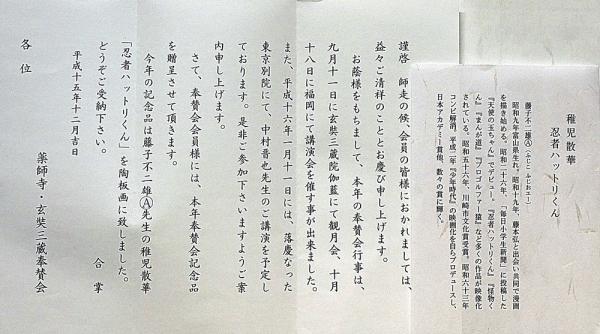 稚児散華
忍者ハットリくん
藤子不二雄Ⓐ（ふじこ・ふじおエー）
昭和九年富山県生れ。昭和十九年、藤本弘と出会い共同で漫画
を描き始める。昭和二十六年、「毎日小学生新聞」に投稿した
『天使の玉ちゃん』でデビュー。『忍者ハットリくん』『怪物く
ん』『まんが道』『プロゴルファー猿』など多くの作品が映像化
されている。昭和五十六年、川崎市文化賞受賞。昭和六十三年
コンビ解消。平成二年『少年時代』の映画化を自らプロデュースし、
日本アカデミー賞他、数々の賞に輝く。
謹啓　師走の候、会員の皆様におかれましては、
益々ご清祥のこととお慶び申し上げます。
お蔭様をもちまして、本年の奉賛会行事は、
九月十一日に玄奘三蔵院伽藍にて観月会、十月
十八日に福岡にて講演会を催す事が出来ました。
また、平成十六年一月十一日には、落慶なった
東京別院にて、中村晋也先生のご講演を予定し
ております。是非ご参加下さいますようご案
内申し上げます。
さて、奉賛会会員様には、本年奉賛会記念品
を贈呈させて頂きます。
今年の記念品は藤子不二雄Ⓐ先生の稚児散華
「忍者ハットリくん」を陶板画に致しました。
どうぞご受納下さい。
合掌
平成十五年十二月吉日
薬師寺・玄奘三蔵奉賛会
各位